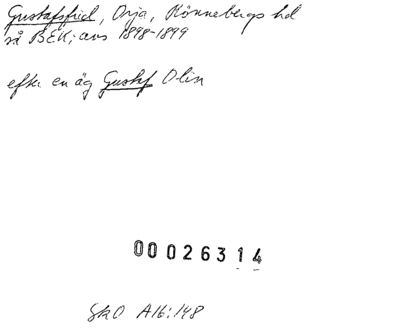 Gustafsfried, Onja, Rönnebergs hd
så BEK; avs 1898-1899
efter en äg Gustaf Olin
00026314
SkO A16:148